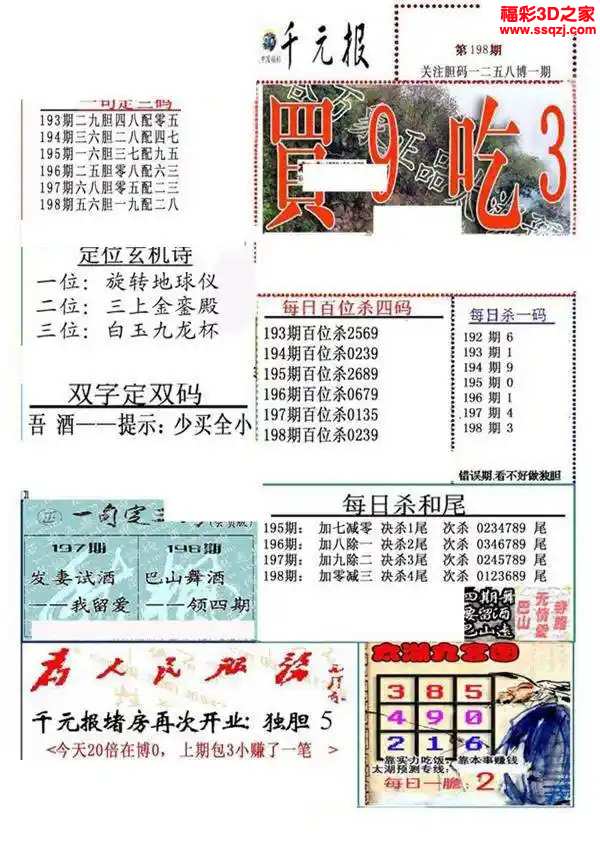 福彩3D之家
www.ssqzj.com
中国福彩
千元报
第198期
关注胆码一二五八博一期
一句定三码
193期二九胆四八配零五
194期三六胆二八配四七
195期一六胆三七配九五
196期二五胆零八配六三
197期六八胆零五配二三
198期五六胆一九配二八
買9吃3
定位玄机诗
一位：旋转地球仪
二位：三上金銮殿
三位：白玉九龙杯
双字定双码
吾 酒——提示：少买全小
每日百位杀四码
193期百位杀2569
194期百位杀0239
195期百位杀2689
196期百位杀0679
197期百位杀0135
198期百位杀0239
每日杀一码
192 期 6
193 期 1
194 期 9
195 期 0
196 期 1
197 期 4
198 期 3
错误期.看不好做独胆
一句定三
197期
发妻试酒
——我留爱
198期
巴山舞酒
——领四期
每日杀和尾
195期： 加七减零 决杀1尾 次杀 0234789 尾
196期： 加八除一 决杀2尾 次杀 0346789 尾
197期： 加九除二 决杀3尾 次杀 0245789 尾
198期： 加零减三 决杀4尾 次杀 0123689 尾
为人民服务
千元报堵房再次开业: 独胆 5
<今天20倍在博0，上期包3小赚了一笔 >
太湖九宫图
3 8 5
4 9 0
2 1 6
靠实力吃饭，靠本事赚钱
太湖预测专线:
每日一胆: 2